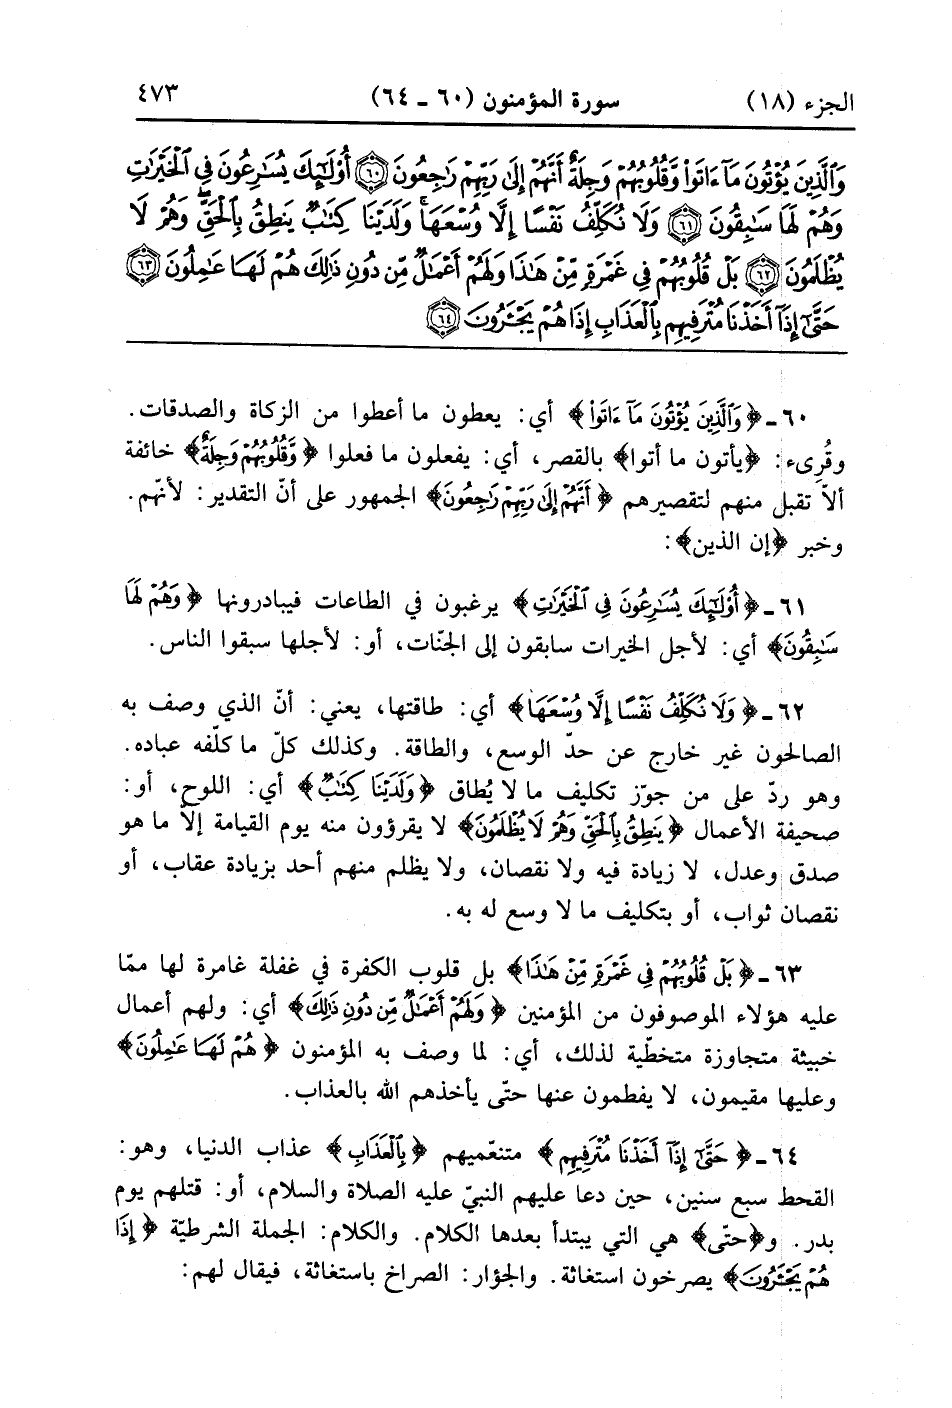 الجزء (١٨) سورة المؤمنون (٦٠ ـ ٦٤) ٤٧٣
وَٱلَّذِينَ يُؤْتُونَ مَآ ءَاتَوا۟ وَّقُلُوبُهُمْ وَجِلَةٌ أَنَّهُمْ إِلَىٰ رَبِّهِمْ رَٰجِعُونَ ﴿٦٠﴾ أُو۟لَٰٓئِكَ يُسَٰرِعُونَ فِى ٱلْخَيْرَٰتِ
وَهُمْ لَهَا سَٰبِقُونَ ﴿٦١﴾ وَلَا نُكَلِّفُ نَفْسًا إِلَّا وُسْعَهَا ۚ وَلَدَيْنَا كِتَٰبٌ يَنطِقُ بِٱلْحَقِّ ۖ وَهُمْ لَا
يُظْلَمُونَ ﴿٦٢﴾ بَلْ قُلُوبُهُمْ فِى غَمْرَةٍ مِّنْ هَٰذَا وَلَهُمْ أَعْمَٰلٌ مِّن دُونِ ذَٰلِكَ هُمْ لَهَا عَٰمِلُونَ ﴿٦٣﴾
حَتَّىٰٓ إِذَآ أَخَذْنَا مُتْرَفِيهِم بِٱلْعَذَابِ إِذَا هُمْ يَجْـَٔرُونَ ﴿٦٤﴾
٦٠ ـ ﴿وَٱلَّذِينَ يُؤْتُونَ مَآ ءَاتَوا۟﴾ أي: يعطون ما أعطوا من الزكاة والصدقات.
وقُرِىء: ﴿يأتون ما أتوا﴾ بالقصر، أي: يفعلون ما فعلوا ﴿وَّقُلُوبُهُمْ وَجِلَةٌ﴾ خائفة
ألاّ تقبل منهم لتقصيرهم ﴿أَنَّهُمْ إِلَىٰ رَبِّهِمْ رَٰجِعُونَ﴾ الجمهور على أنّ التقدير: لأنّهم.
وخبر ﴿إن الذين﴾:
٦١ ـ ﴿أُو۟لَٰٓئِكَ يُسَٰرِعُونَ فِى ٱلْخَيْرَٰتِ﴾ يرغبون في الطاعات فيبادرونها ﴿وَهُمْ لَهَا
سَٰبِقُونَ﴾ أي: لأجل الخيرات سابقون إلى الجنّات، أو: لأجلها سبقوا الناس.
٦٢ ـ ﴿وَلَا نُكَلِّفُ نَفْسًا إِلَّا وُسْعَهَا﴾ أي: طاقتها، يعني: أنّ الذي وصف به
الصالحون غير خارج عن حدّ الوسع، والطاقة. وكذلك كلّ ما كلّفه عباده.
وهو ردّ على من جوّز تكليف ما لا يُطاق ﴿وَلَدَيْنَا كِتَٰبٌ﴾ أي: اللوح، أو:
صحيفة الأعمال ﴿يَنطِقُ بِٱلْحَقِّ وَهُمْ لَا يُظْلَمُونَ﴾ لا يقرؤون منه يوم القيامة إلاّ ما هو
صدق وعدل، لا زيادة فيه ولا نقصان، ولا يظلم منهم أحد بزيادة عقاب، أو
نقصان ثواب، أو بتكليف ما لا وسع له به.
٦٣ ـ ﴿بَلْ قُلُوبُهُمْ فِى غَمْرَةٍ مِّنْ هَٰذَا﴾ بل قلوب الكفرة في غفلة غامرة لها ممّا
عليه هؤلاء الموصوفون من المؤمنين ﴿وَلَهُمْ أَعْمَٰلٌ مِّن دُونِ ذَٰلِكَ﴾ أي: ولهم أعمال
خبيثة متجاوزة متخطّية لذلك، أي: لما وصف به المؤمنون ﴿هُمْ لَهَا عَٰمِلُونَ﴾
وعليها مقيمون، لا يفطمون عنها حتّى يأخذهم الله بالعذاب.
٦٤ ـ ﴿حَتَّىٰٓ إِذَآ أَخَذْنَا مُتْرَفِيهِم﴾ متنعّميهم ﴿بِٱلْعَذَابِ﴾ عذاب الدنيا، وهو:
القحط سبع سنين، حين دعا عليهم النبيّ عليه الصلاة والسلام، أو: قتلهم يوم
بدر. و﴿حتّى﴾ هي التي يبتدأ بعدها الكلام. والكلام: الجملة الشرطيّة ﴿إِذَا
هُمْ يَجْـَٔرُونَ﴾ يصرخون استغاثة. والجؤار: الصراخ باستغاثة، فيقال لهم: